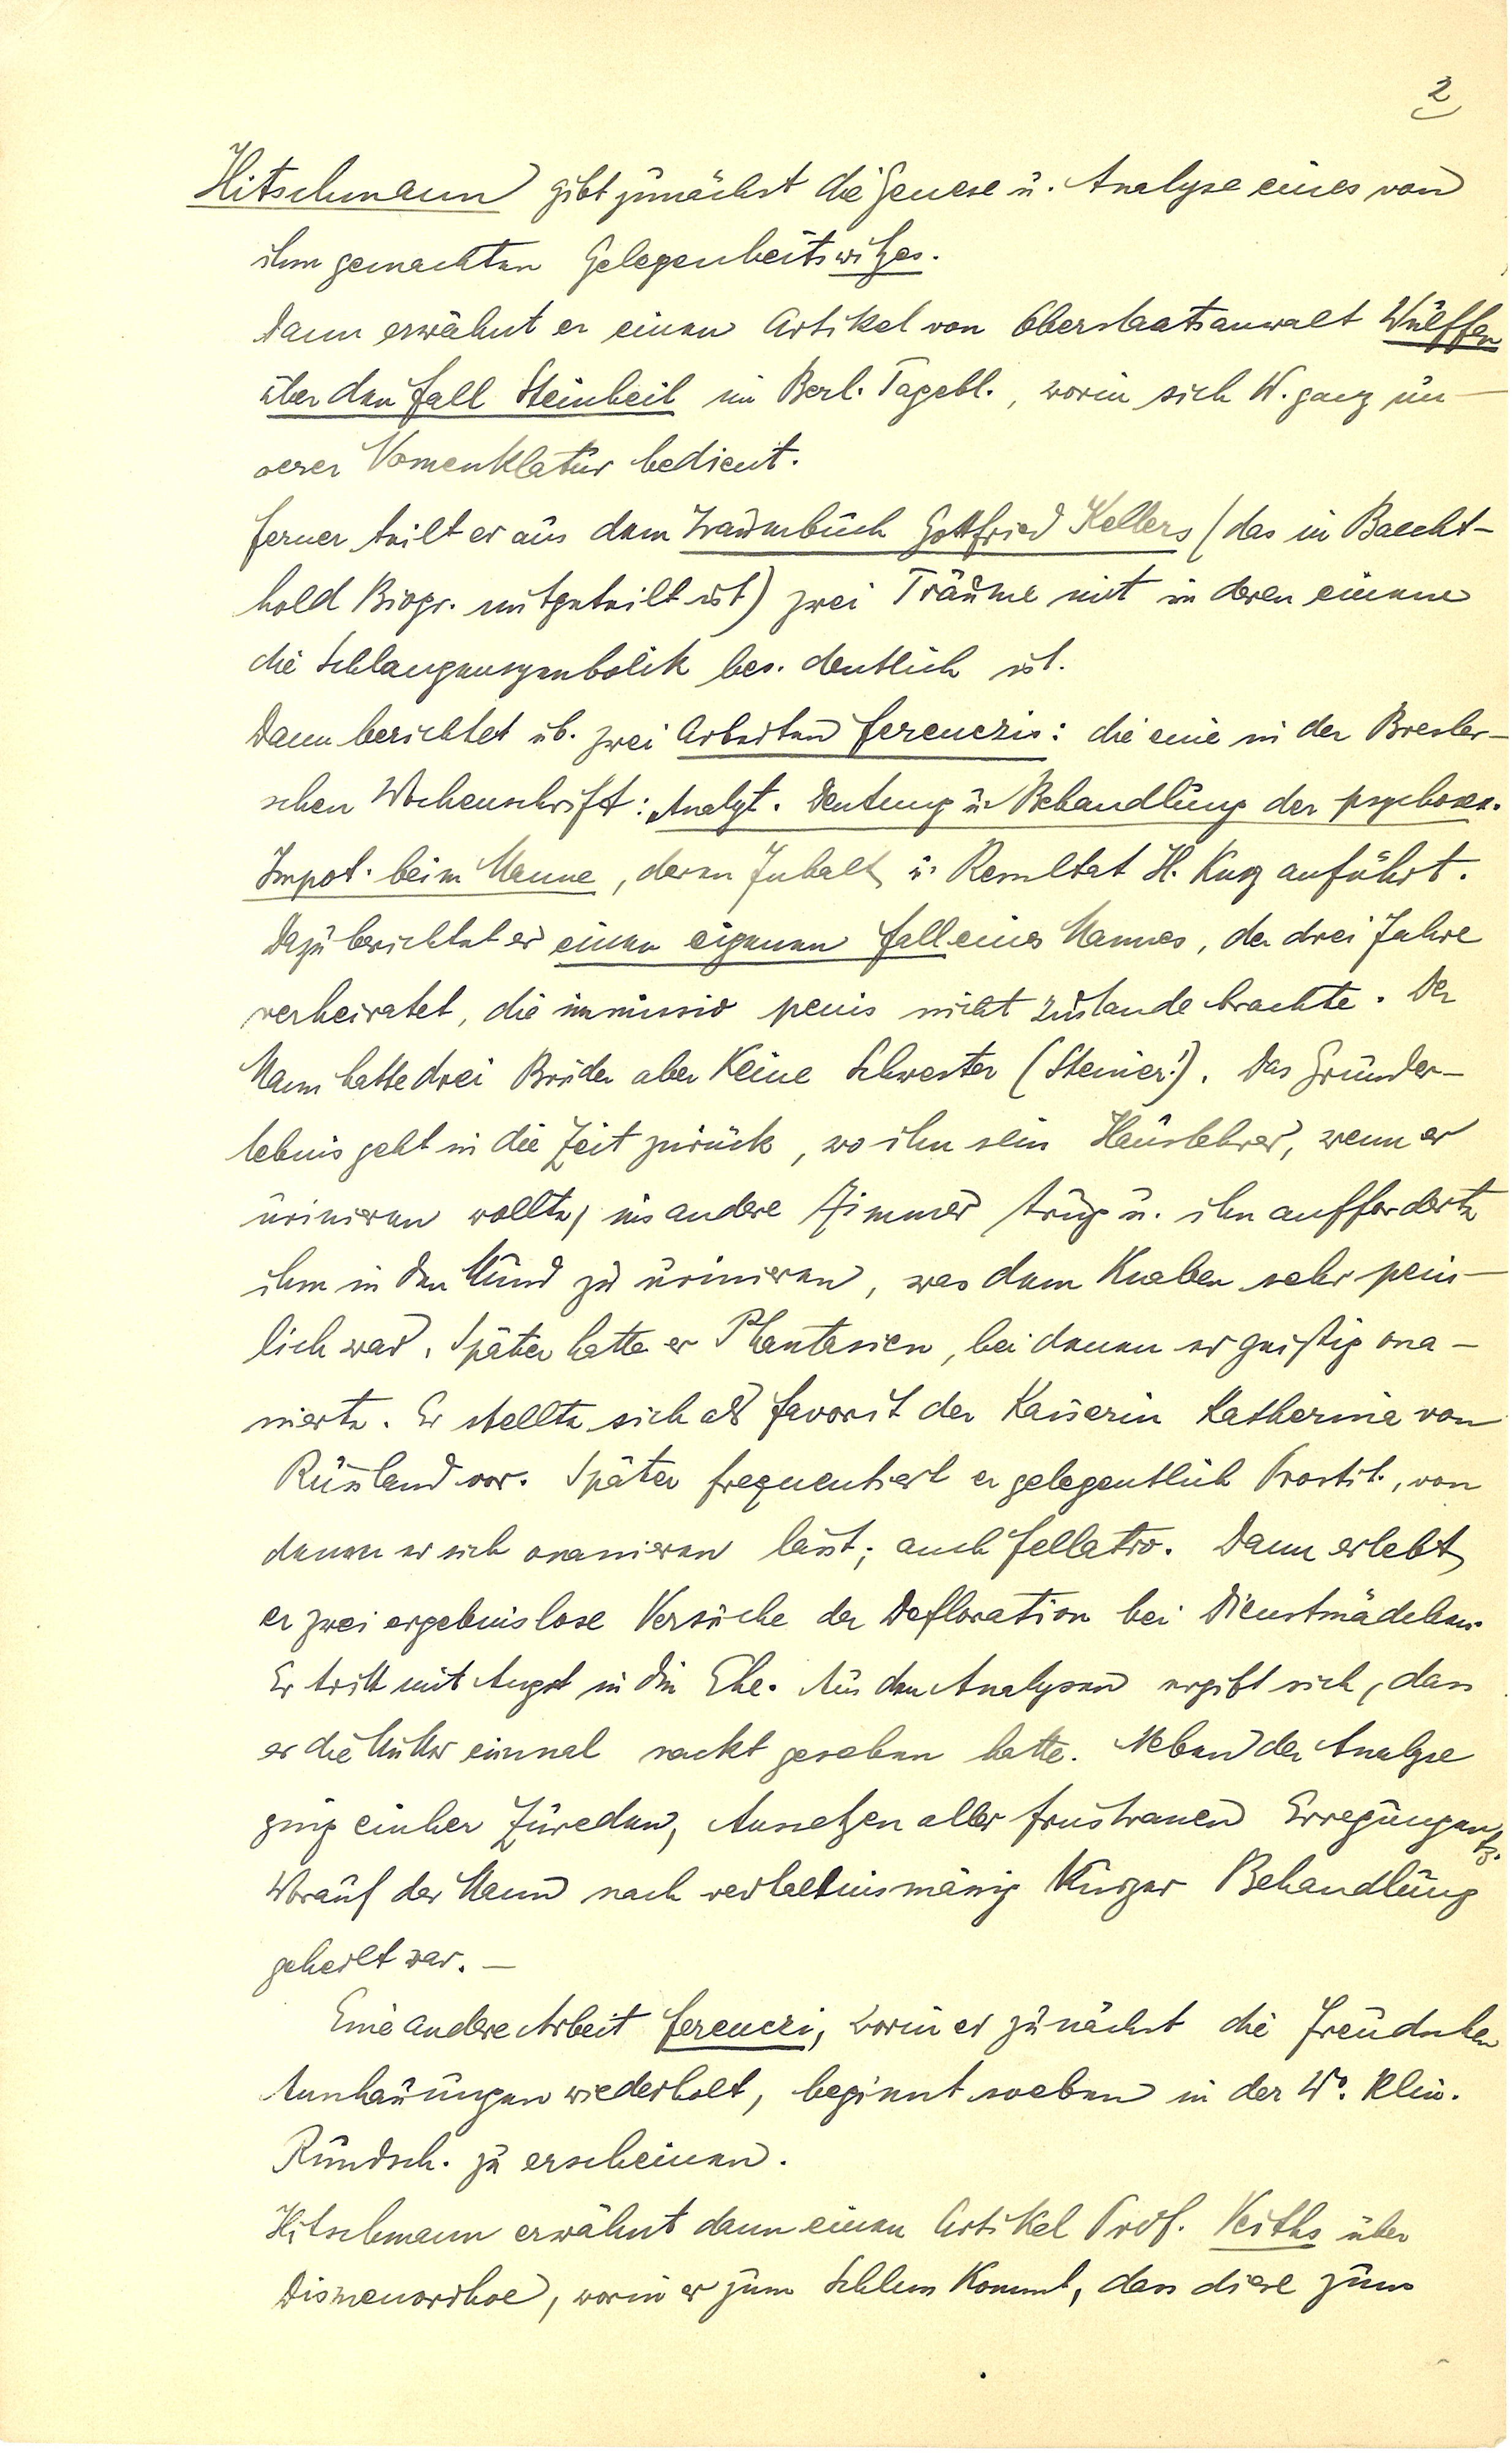 2
Hitschmann gibt zunächst die Genese u. Analyse eines von
ihm gemachten Gelegenheitswitzes.
Dann erwähnt er einen Artikel von Oberstaatsanwalt Wulffen
über den Fall Steinheil im Berl. Tagebl., worin sich W. ganz un-
serer Nomenklatur bedient.
Ferner teilt er aus dem Traumbuch Gottfried Kellers (das in Baecht-
hold Biogr. mitgeteilt ist) zwei Träume mit in deren einem
die Schlangensymbolik bes. deutlich ist.
Dann berichtet üb. zwei Arbeiten Ferenczis: die eine in der Bresler-
schen Wochenschrift: Analyt. Deutung u. Behandlung der psychosex.
Impot. beim Manne, deren Inhalt u. Resultat H. kurz anführt.
Dazu berichtet er einen eigenen Fall eines Mannes, der drei Jahre
verheiratet, die immissio penis nicht zustande brachte. Der
Mann hatte drei Brüder aber keine Schwester (Steiner!). Das Grunder-
lebnis geht in die Zeit zurück, wo ihn sein Hauslehrer, wenn er
urinieren wollte, ins andere Zimmer trug u. ihn aufforderte
ihm in den Mund zu urinieren, was dem Knaben sehr pein-
lich war. Später hatte er Phantasien, bei denen er geistig ona-
nierte. Er stellte sich als Favorit der Kaiserin Katherina von
Russland vor. Später frequentiert er gelegentlich Prostit., von
denen er sich onanieren lässt; auch Fellatio. Dann erlebt
er zwei ergebnislose Versuche der Defloration bei Dienstmädchen.
Er tritt mit Angst in die Ehe. Aus den Analysen ergibt sich, dass
er die Mutter einmal nackt gesehen hatte. Neben der Analyse
ging einher Zureden, Aussetzen aller frustranen Erregungen
Worauf der Mann nach verhältnismässig kurzer Behandlung
geheilt war. —
Eine andere Arbeit Ferenczi, worin er zunächst die Freudschen
Anschauungen wiederholt, beginnt soeben in der W. klin.
Rundsch. zu erscheinen.
Hitschmann erwähnt dann einen Artikel Prof. Veiths über
Dismenorrhoe, worin er zum Schluss kommt, dass diese zum